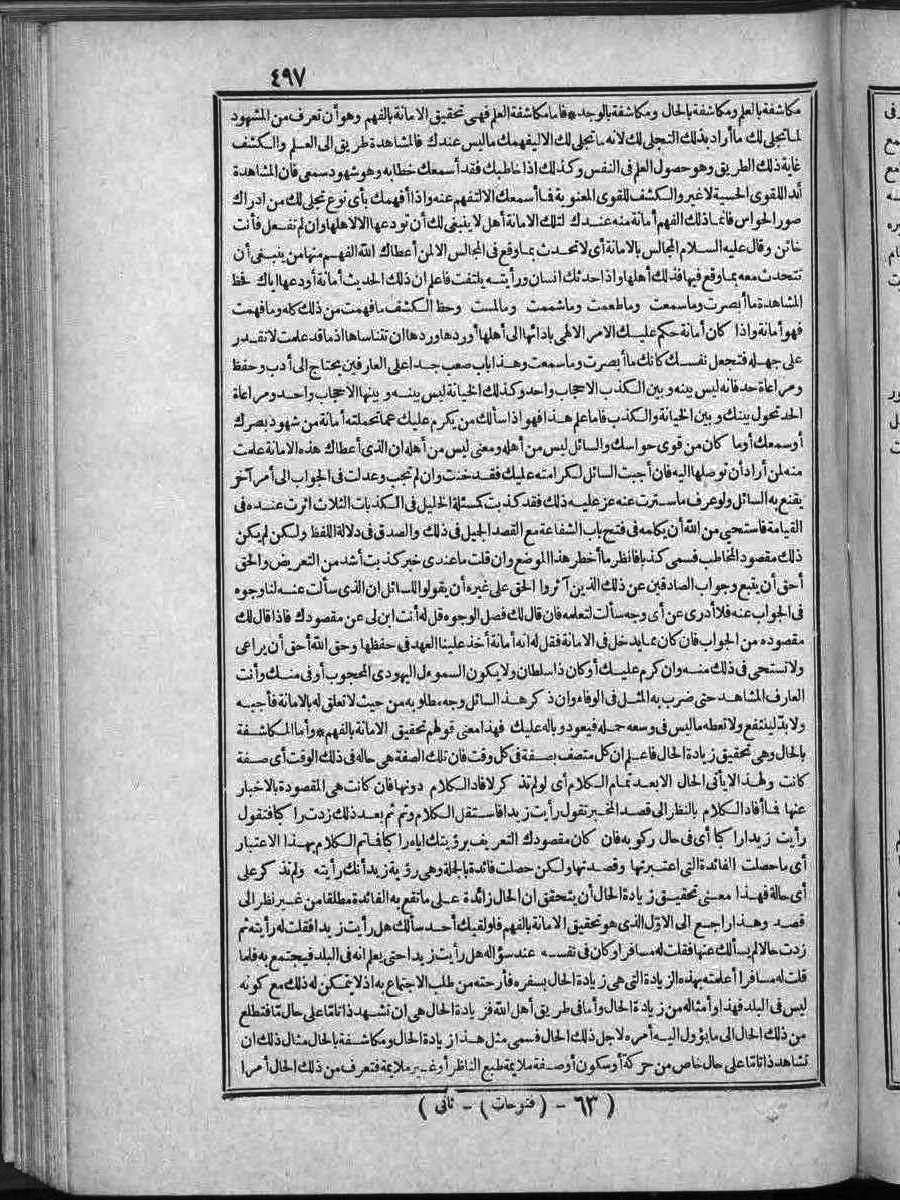 ٤٩٧
مكاشفة بالعلم ومكاشفة بالحال ومكاشفة بالوجد * فاما مكاشفة العلم فهى تحقيق الامانة بالفهم وهو أن تعرف من المشهود
لما تجلى لك ما أراد بذلك التجلى لك لانه ما تجلى لك الا ليفهمك ما ليس عندك فالمشاهدة طريق الى العلم والكشف
غاية ذلك الطريق وهو حصول العلم فى النفس وكذلك اذا خاطبك فقد أسمعك خطابه وهو شهود سمعى فان المشاهدة
أبدا للقوى الحسية لا غير والكشف للقوى المعنوية فما أسمعك الا لتفهم عنه واذا أفهمك بأى نوع تجلى لك من ادراك
صور الحواس فانما ذلك الفهم أمانة منه عندك لتلك الامانة أهل لا ينبغى لك أن تودعها الا لاهلها وان لم تفعل فأنت
خائن وقال عليه السلام المجالس بالامانة أى لا تحدث بما وقع فى المجالس الا لمن أعطاك الله الفهم منها من ينبغى أن
تتحدث معه بما وقع فيها فذلك أهلها واذا حدثك انسان ورأيته يلتفت فاعلم ان ذلك الحديث أمانة أودعها اياك لحظ
المشاهدة ما أبصرت وما سمعت وما طعمت وما شممت وما لمست وحظ الكشف ما فهمت من ذلك كله وما فهمت
فهو أمانة واذا كان أمانة حكم عليك الامر الالهى بادائها الى أهلها أو ردها وردها ان تتناساها اذ ما قد علمت لا تقدر
على جهله فتجعل نفسك كانك ما أبصرت وما سمعت وهذا باب صعب جدا على العارفين يحتاج الى أدب وحفظ
ومراعاة حد فانه ليس بينه وبين الكذب الا حجاب واحد وكذلك الخيانة ليس بينه وبينها الا حجاب واحد ومراعاة
الحد تحول بينك وبين الخيانة والكذب فاعلم هذا فهو اذا سألك من يكرم عليك عما تحملته أمانة من شهود بصرك
أو سمعك أو ما كان من قوى حواسك والسائل ليس من أهله ومعنى ليس من أهله ان الذى أعطاك هذه الامانة علمت
منه لمن أراد أن توصلها اليه فان أجبت السائل لكرامته عليك فقد خنت وان لم تجب وعدلت فى الجواب الى أمر آخر
يقنع به السائل ولو عرف ما سترت عنه عز عليه ذلك فقد كذبت كمسئلة الخليل فى الكذبات الثلاث اثرت عنده فى
القيامة فاستحيى من الله أن يكلمه فى فتح باب الشفاعة مع القصد الجميل فى ذلك والصدق فى دلالة اللفظ ولكن لم يكن
ذلك مقصود المخاطب فسمى كذبا فانظر ما أخطر هذا الموضع وان قلت ما عندى خبر كذبت أشد من التعريض والحق
أحق أن يتبع وجواب الصادقين عن ذلك الذين آثروا الحق على غيره أن يقولوا للسائل ان الذى سألت عنه لنا وجوه
فى الجواب عنه فلا أدرى عن أى وجه سألت لتعلمه فان قال لك فصل الوجوه قل له أنت ابن لى عن مقصودك فاذا قال لك
مقصوده من الجواب فان كان مما يدخل فى الامانة فقل له انه أمانة أخذ علينا العهد فى حفظها وحق الله أحق أن يراعى
ولا تستحى فى ذلك منه وان كرم عليك أو كان ذا سلطان ولا يكون السموءل اليهودى المحجوب أوفى منك وأنت
العارف المشاهد حتى ضرب به المثل فى الوفاء وان ذكر هذا السائل وجه مطلوبه من حيث لا تعلق له بالامانة فأجبه
ولا بد لينتفع ولا تعطه ما ليس فى وسعه حمله فيعود وباله عليك فهذا معنى قولهم تحقيق الامانة بالفهم * وأما المكاشفة
بالحال وهى تحقيق زيادة الحال فاعلم ان كل متصف بصفة فى كل وقت فان تلك الصفة هى حاله فى ذلك الوقت أى صفة
كانت ولهذا لا يأتى الحال الا بعد تمام الكلام أى لو لم تذكر لافاد الكلام دونها فان كانت هى المقصودة بالاخبار
عنها فما أفاد الكلام بالنظر الى قصد المخبر تقول رأيت زيدا فاستقل الكلام وتم ثم بعد ذلك زدت راكبا فتقول
رأيت زيدا راكبا أى فى حال ركوبه فان كان مقصودك التعريف برؤيتك اياه راكبا فاتم الكلام بهذا الاعتبار
أى ما حصلت الفائدة التى اعتبرتها وقصدتها ولكن حصلت فائدة بالجملة وهى رؤية زيد أنك رأيته ولم تذكر على
أى حالة فهذا معنى تحقيق زيادة الحال أن يتحقق ان الحال زائدة على ما تقع به الفائدة مطلقا من غير نظر الى
قصد وهذا راجع الى الاول الذى هو تحقيق الامانة بالفهم فلو لقيك أحد سألك هل رأيت زيدا فقلت له رأيته ثم
زدت حالا لم يسألك عنها فقلت له مسافرا وكان فى نفسه عند سؤاله هل رأيت زيدا حتى يعلم انه فى البلد فيجتمع به فلما
قلت له مسافرا أعلمته بهذه الزيادة التى هى زيادة الحال بسفره فأرحته من طلب الاجتماع به اذ لا يتمكن له ذلك مع كونه
ليس فى البلد فهذا وأمثاله من زيادة الحال وأما فى طريق أهل الله فزيادة الحال هى ان تشهد ذاتا ما على حال ما فتطلع
من ذلك الحال الى ما يؤول اليه أمره لاجل ذلك الحال فسمى مثل هذا زيادة الحال ومكاشفة بالحال مثال ذلك ان
تشاهد ذاتا ما على حال خاص من حركة أو سكون أو صفة ملايمة طبع الناظر أو غير ملايمة فتعرف من ذلك الحال أمرا
( ٦٣ - ( فتوحات ) - ثانى )